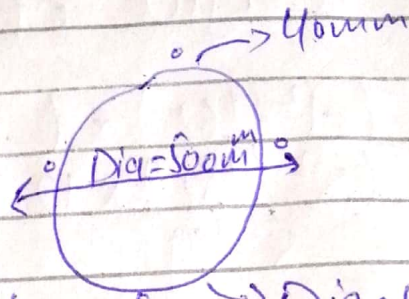 40mm
Dia=500mm